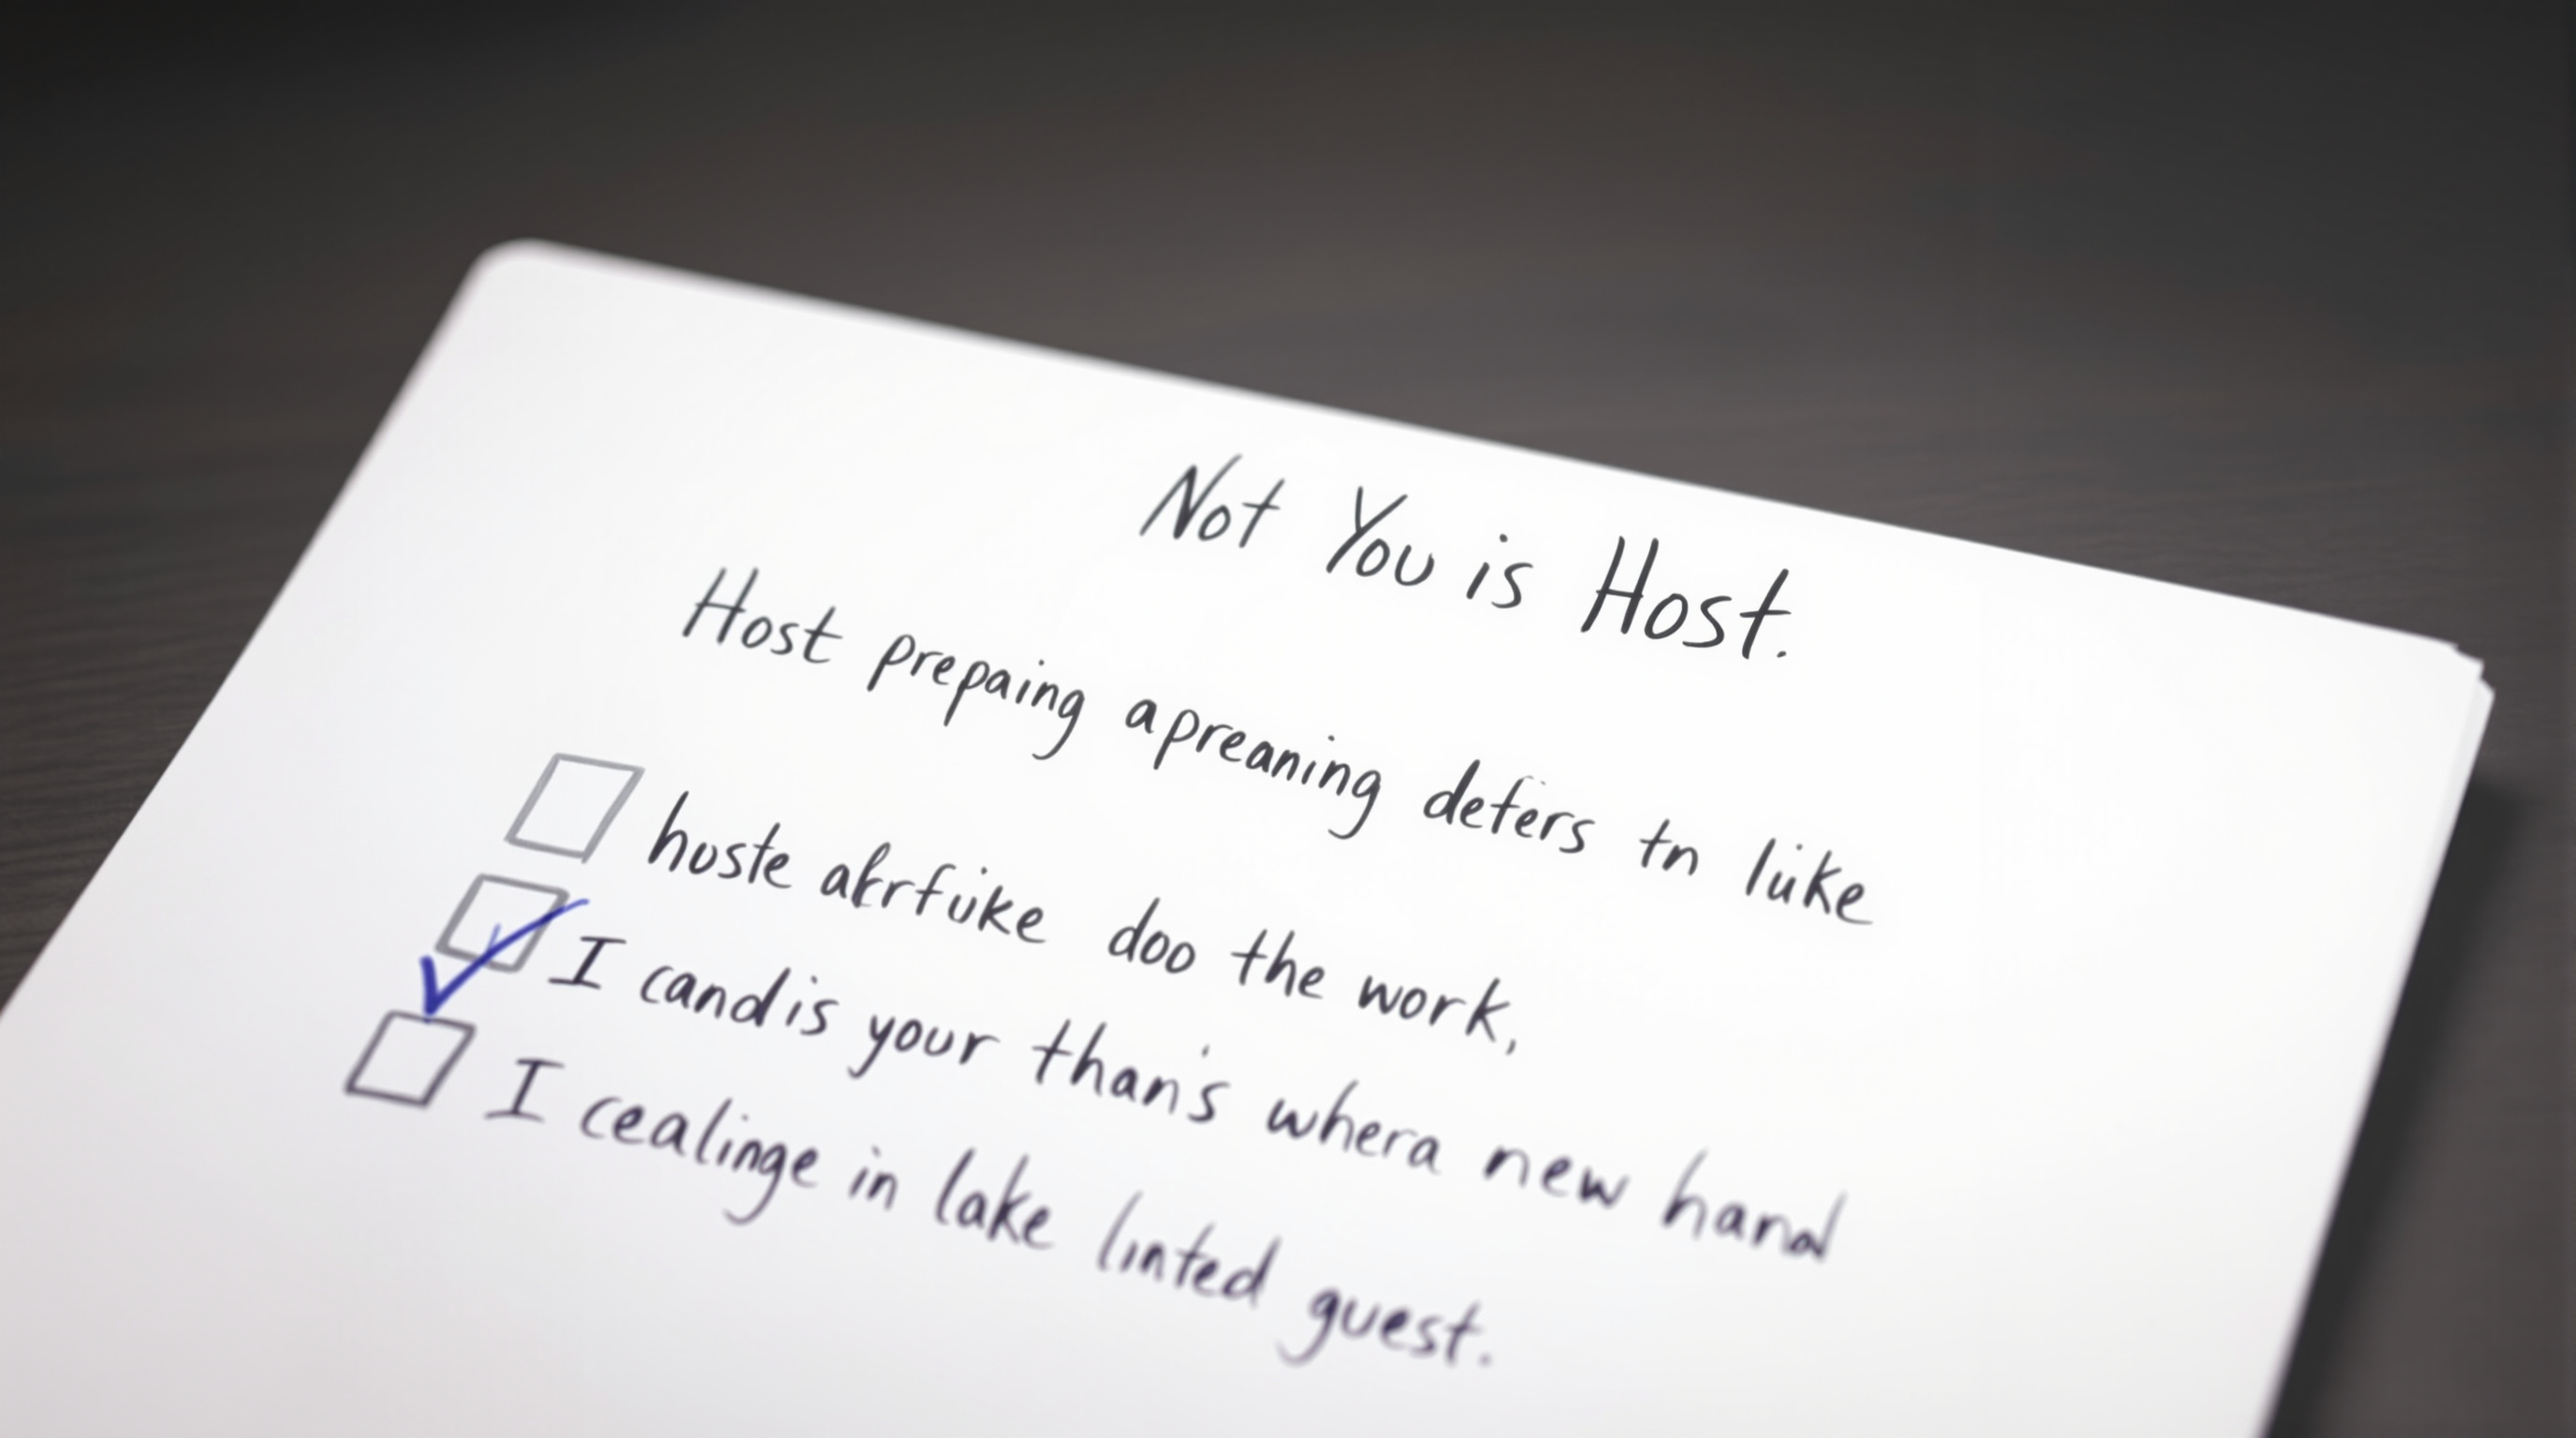 Not You is Host.
Host prepaing apreaning defers tn like
huste akrfuike doo the work,
I candis your than's whera new hand
I cealinge in lake linted guest.